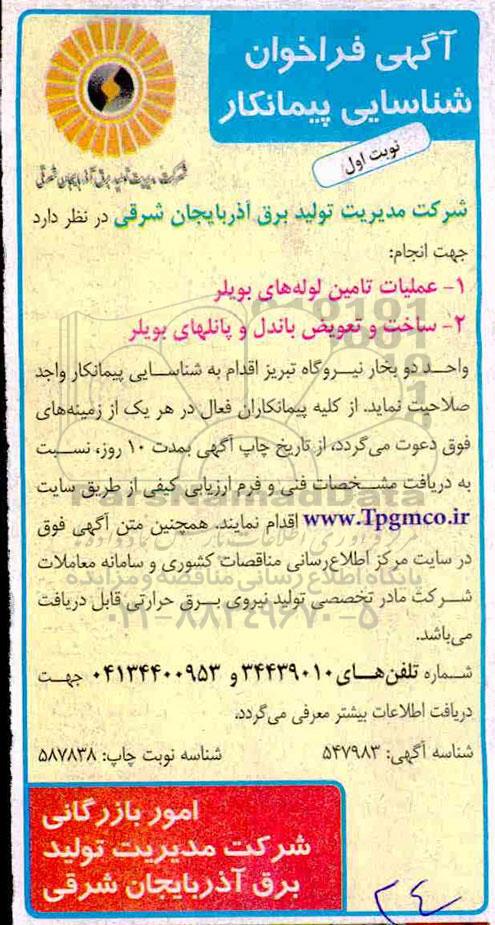 آگهی فراخوان
شناسایی پیمانکار
نوبت اول
شرکت مدیریت تولید برق آذربایجان شرقی
شرکت مدیریت تولید برق آذربایجان شرقی در نظر دارد
جهت انجام:
۱- عملیات تامین لوله‌های بویلر
۲- ساخت و تعویض باندل و پانلهای بویلر
واحد دو بخار نیروگاه تبریز اقدام به شناسایی پیمانکار واجد
صلاحیت نماید. از کلیه پیمانکاران فعال در هر یک از زمینه‌های
فوق دعوت می‌گردد، از تاریخ چاپ آگهی بمدت ۱۰ روز، نسبت
به دریافت مشخصات فنی و فرم ارزیابی کیفی از طریق سایت
www.Tpgmco.ir اقدام نمایند. همچنین متن آگهی فوق
در سایت مرکز اطلاع‌رسانی مناقصات کشوری و سامانه معاملات
شرکت مادر تخصصی تولید نیروی برق حرارتی قابل دریافت
می‌باشد.
شماره تلفن‌های ۳۴۴۳۹۰۱۰ و ۰۴۱۳۴۴۰۰۹۵۳ جهت
دریافت اطلاعات بیشتر معرفی می‌گردد.
شناسه آگهی: ۵۴۷۹۸۳ شناسه نوبت چاپ: ۵۸۷۸۳۸
امور بازرگانی
شرکت مدیریت تولید
برق آذربایجان شرقی
۲۴
ParsNamadData
پایگاه اطلاع رسانی مناقصه و مزایده
۰۲۱-۸۸۳۴۹۶۷۰-۵